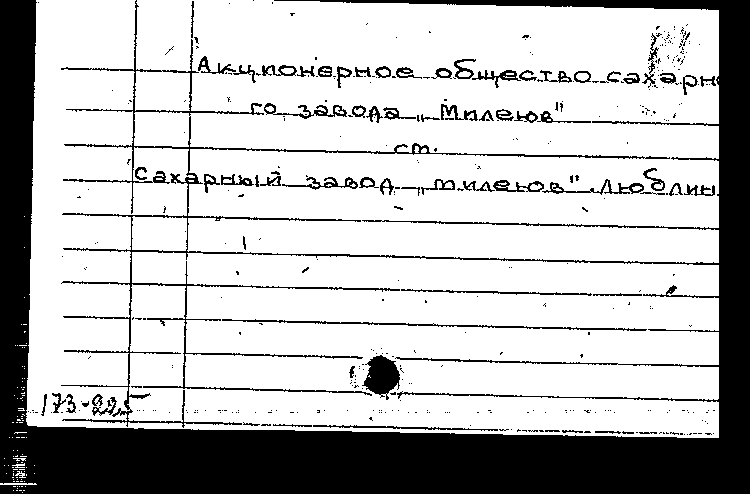 Акционерное общество сахарно
го завода „Милеюв"
ст.
Сахарный завод „Милеюв". Люблин
173-225